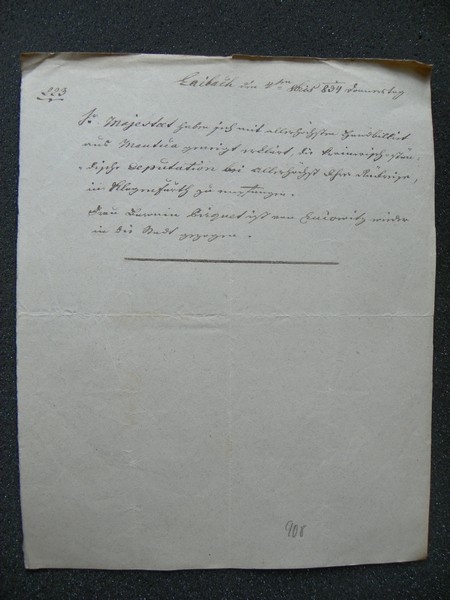 223
Laibach den 4ten 839 Donnerstag
Se Majestät haben sich mit allerhöchsten Handbillet
aus Mantua geneigt erklärt, die Krainerisch-stän-
dische Deputation bei allerhöchst Ihrer Rückreise,
in Klagenfurth zu empfangen.
Frau Baronin ist von wieder
in die Stadt gezogen.
908